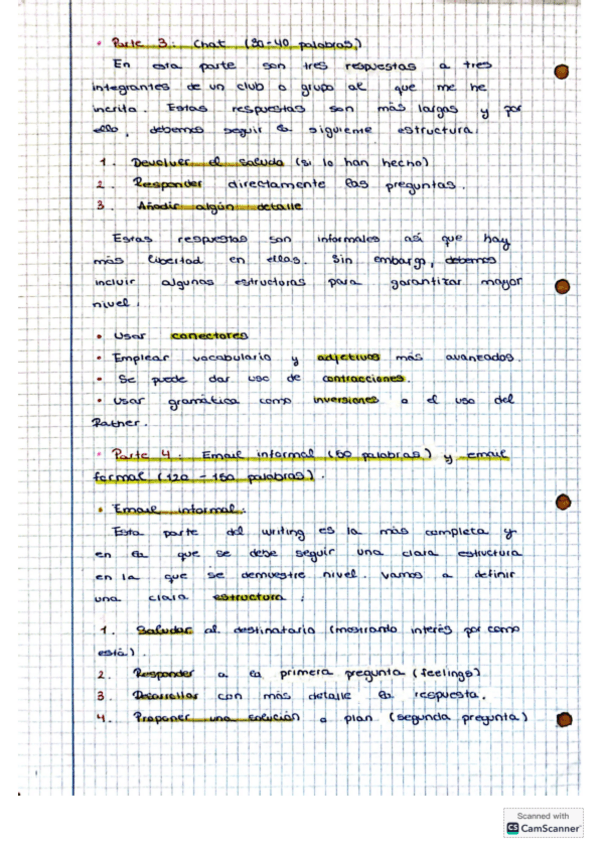 • Parte 3: Chat (30-40 palabras)
En esta parte son tres respuestas a tres
integrantes de un club o grupo al que me he
incrito. Estas respuestas son más largas y por
ello, debemos seguir la siguiente estructura:
1. Devolver el saludo (si lo han hecho)
2. Responder directamente las preguntas.
3. Añadir algún detalle
Estas respuestas son informales así que hay
más libertad en ellas. Sin embargo, debemos
incluir algunas estructuras para garantizar mayor
nivel.
• Usar conectores
• Emplear vocabulario y adjetivos más avanzados.
• Se puede dar uso de contracciones.
• Usar gramática como inversiones o el uso del
Rather.
• Parte 4: Email informal (50 palabras) y email
formal (120 - 150 palabras).
• Email informal:
Esta parte del writing es la más completa y
en la que se debe seguir una clara estructura
en la que se demuestre nivel. Vamos a definir
una clara estructura:
1. Saludar al destinatario (mostrando interés por como
está).
2. Responder a la primera pregunta (feelings)
3. Desarrollar con más detalle la respuesta.
4. Proponer una solución o plan (segunda pregunta)
Scanned with
CS CamScanner